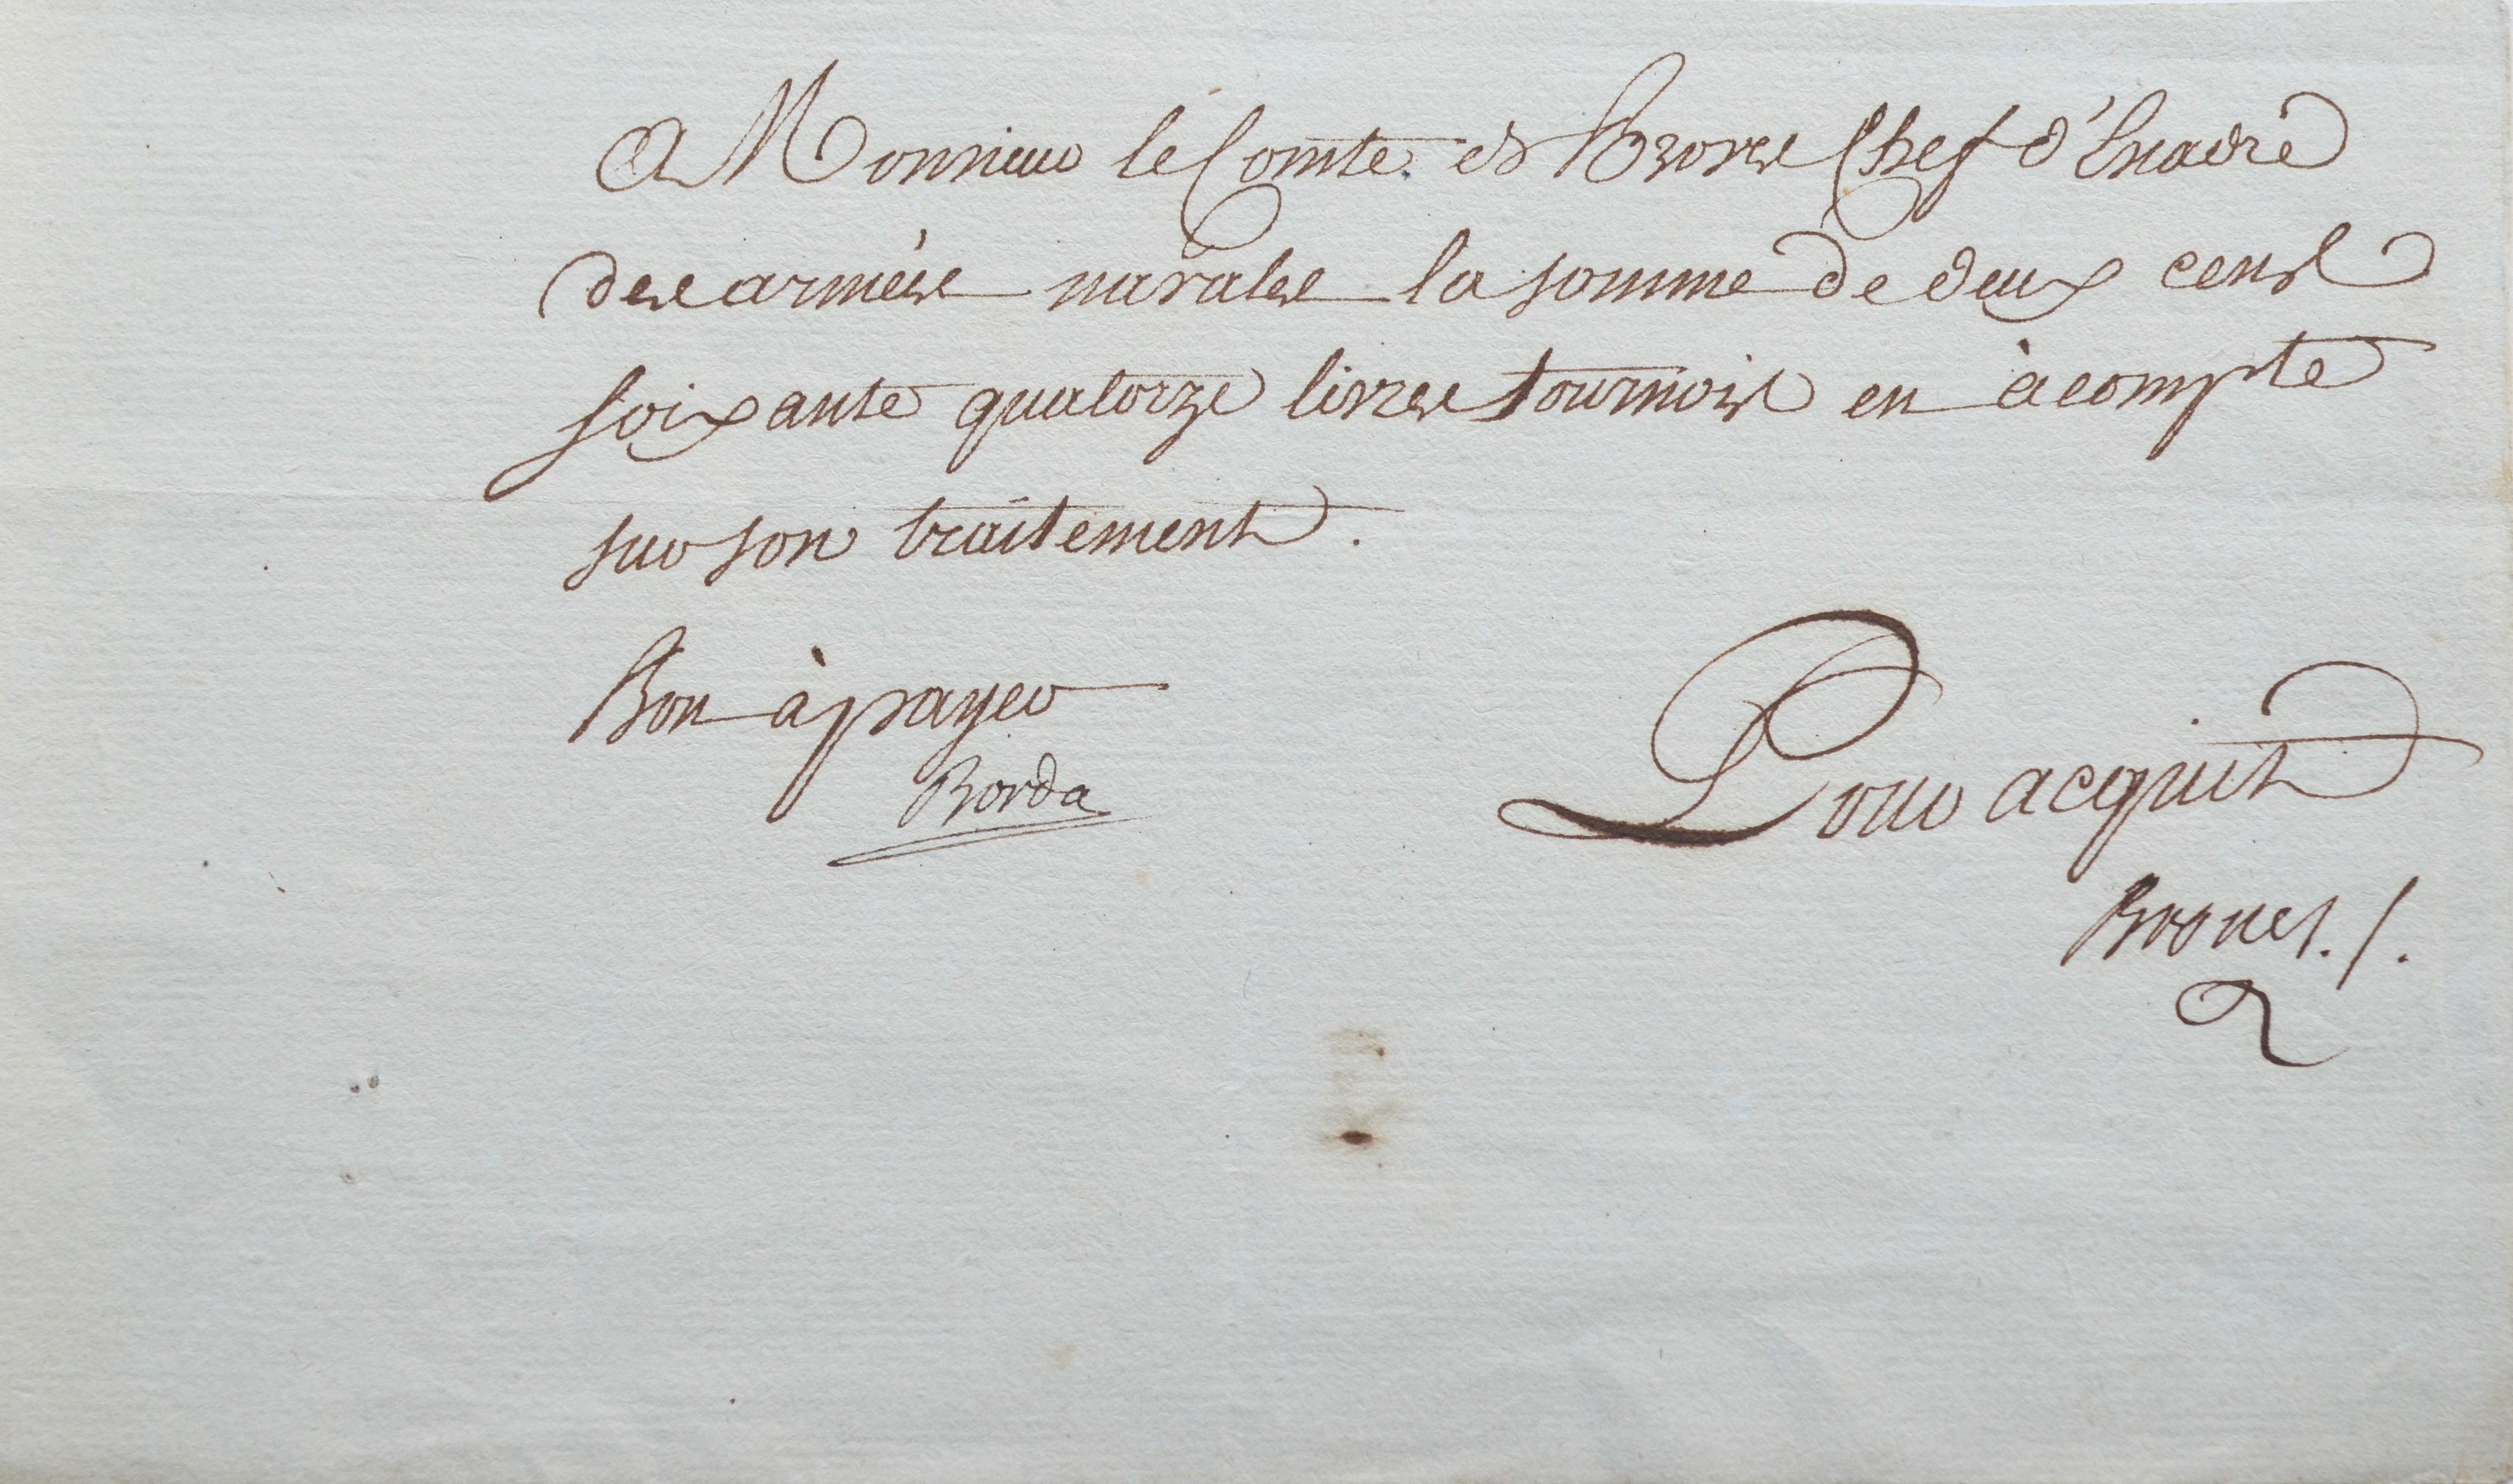 A Monsieur le Comte de Broves Chef d'Escadre
des armées navales la somme de deux cens
soixante quatorze livres tournois en àcompte
sur son traitement.
Bon à payer
Borda
Pour acquit
Broves ./.